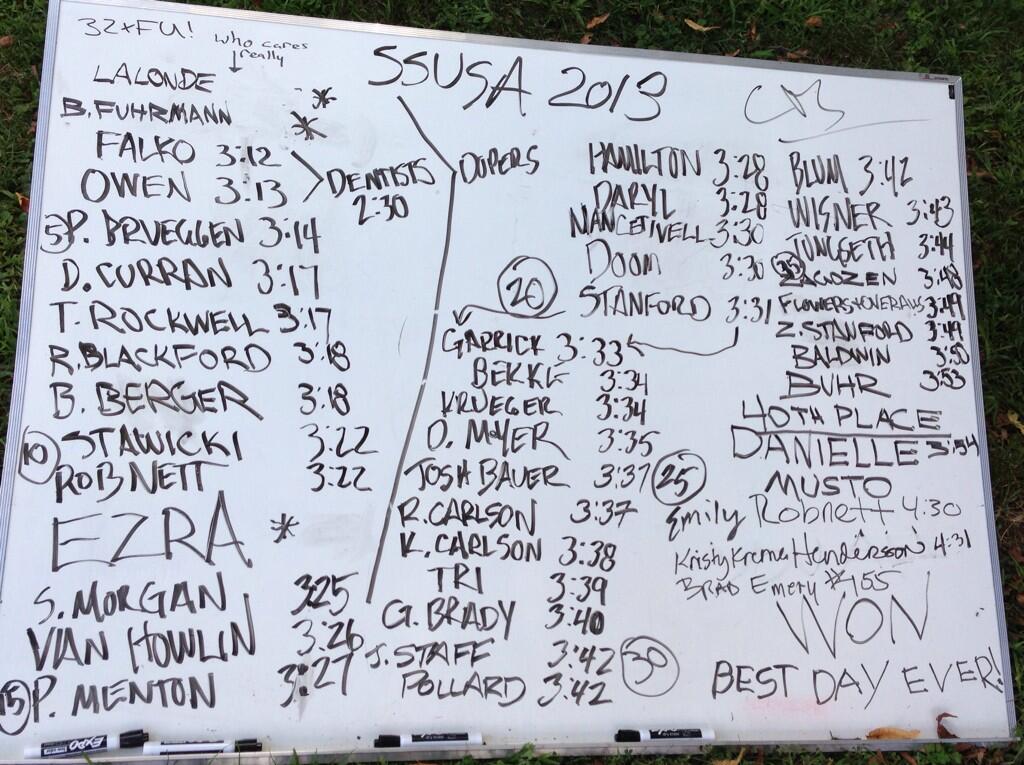 32xFU!
who cares
really
SSUSA 2013
LALONDE
B. FUHRMANN *
FALKO 3:12
OWEN 3:13
DENTISTS
2:30
5 P. BRUEGGEN 3:14
D. CURRAN 3:17
T. ROCKWELL 3:17
R. BLACKFORD 3:18
B. BERGER 3:18
10 STAWICKI 3:22
ROBNETT 3:22
EZRA *
S. MORGAN 325
VAN HOWLIN 3:26
15 P. MENTON 3:27
DOPERS
HAMILTON 3:28
DARYL 3:28
MANCETIVELL 3:30
DOOM 3:30
20 STANFORD 3:31
GARRICK 3:33
BEKKE 3:34
KRUEGER 3:34
D. MEYER 3:35
JOSH BAUER 3:37 25
R. CARLSON 3:37
K. CARLSON 3:38
TRI 3:39
G. BRADY 3:40
J. STAFF 3:42 30
POLLARD 3:42
BLUM 3:42
WISNER 3:43
JUNGGETH 3:44
35 ZAGOZEN 3:48
FLOWERS 3:49
Z. STANFORD 3:49
BALDWIN 3:50
BUHR 3:53
40TH PLACE
DANIELLE 3:54
MUSTO
Emily Robnett 4:30
Kristy Kreme Henderson 4:31
BRAD Emery #155
WON
BEST DAY EVER!
EXPO